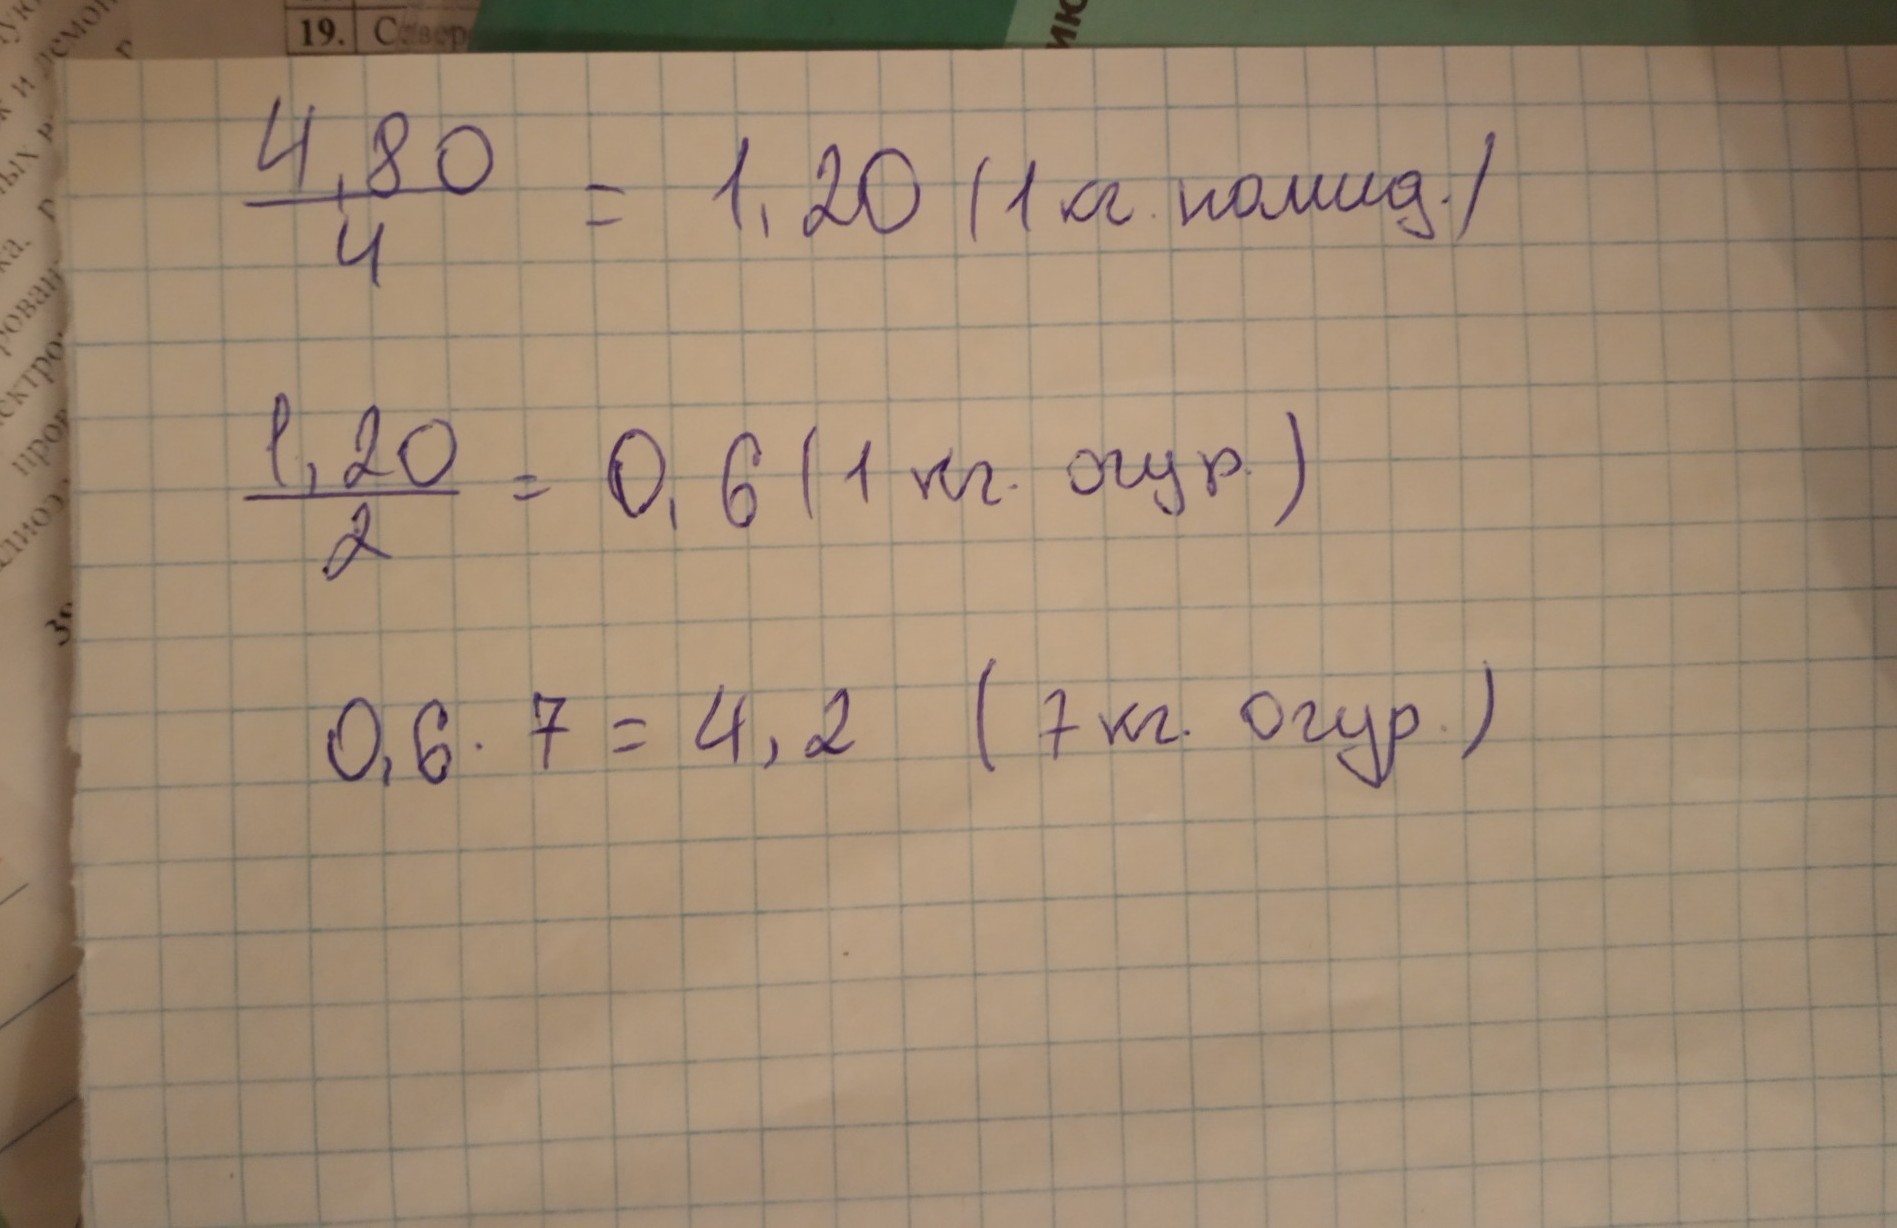 19. Север
ИЮ
4,80 / 4 = 1,20 (1 кг. помид.)
1,20 / 2 = 0,6 (1 кг. огур.)
0,6 · 7 = 4,2 (7 кг. огур.)